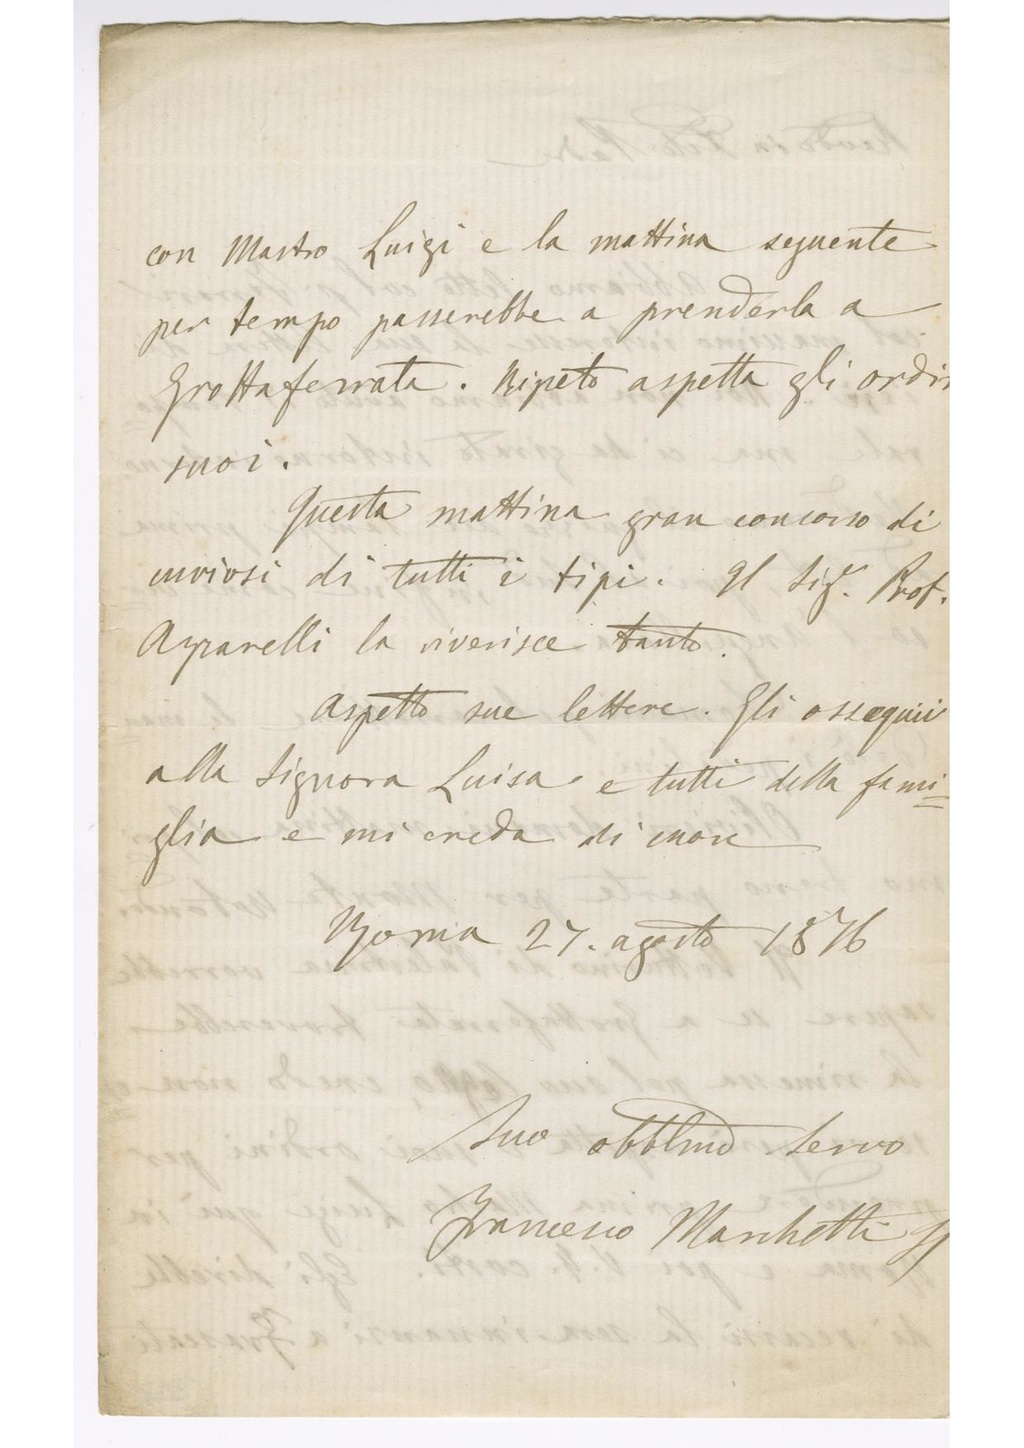 con Mastro Luigi e la mattina seguente
per tempo passerebbe a prenderla a
Grottaferrata. Ripeto aspetta gli ordin
suoi.
Questa mattina gran concorso di
curiosi di tutti i tipi. Il Sig. Prof.
la riverisce tanto.
Aspetto sue lettere. Gli ossequii
alla Signora Luisa e tutti della fami=
glia e mi creda di cuore
Roma 27. agosto 1876
Suo obblmo servo
Francesco Marchetti